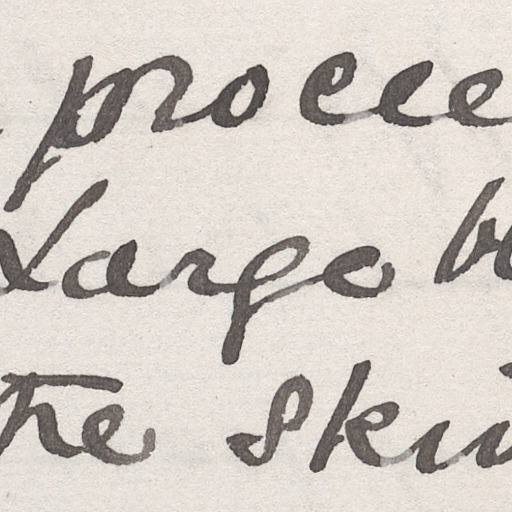 procee
Largo b
the Ski